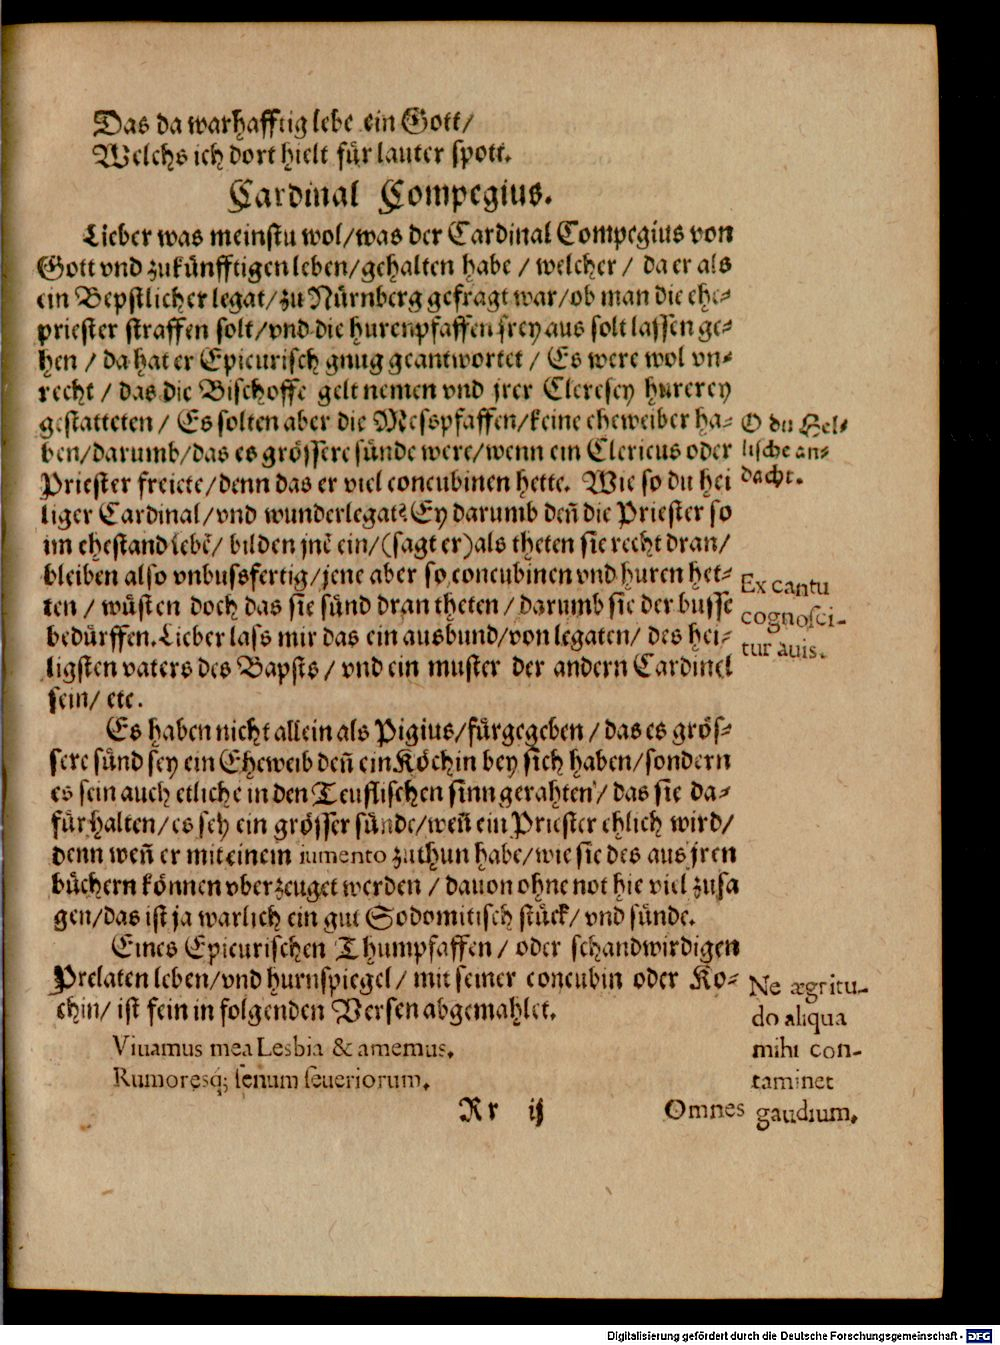 Das da warhafftig lebe ein Gott/
Welchs ich dort hielt für lauter spott.
Cardinal Compegius.
Lieber was meinstu wol/was der Cardinal Compegius von
Gott vnd zukünfftigen leben/gehalten habe / welcher / da er als
ein Bepstlicher legat/zu Nürnberg gefragt war/ob man die ehe-
priester straffen solt/vnd die hurenpfaffen frey aus solt lassen ge-
hen / da hat er Epicurisch gnug geantwortet / Es were wol vn-
recht / das die Bischoffe gelt nemen vnd jrer Cleresey hurerey
gestatteten / Es solten aber die Messpfaffen/keine eheweiber ha-
ben/darumb/das es grössere sünde were/wenn ein Clericus oder
Priester freiete/denn das er viel concubinen hette. Wie so du hei
liger Cardinal/vnd wunderlegat? Ey darumb deñ die Priester so
im ehestand lebẽ/ bilden jnẽ ein/(sagt er)als theten sie recht dran/
bleiben also vnbussfertig/jene aber so concubinen vnd huren het-
ten / wüsten doch das sie sünd dran theten / darumb sie der busse
bedürffen. Lieber lass mir das ein ausbund/von legaten/ des hei-
ligsten vaters des Bapsts / vnd ein muster der andern Cardinel
sein/ etc.
O du Hel-
lische an-
dacht.
Ex cantu
cognosci-
tur auis.
Es haben nicht allein als Pigius/fürgegeben / das es grös-
sere sünd sey ein Eheweib deñ ein Köchin bey sich haben/sondern
es sein auch etliche in den Teuflischen sinn gerahten / das sie da-
für halten/es sey ein grösser sünde/weñ ein Priester ehlich wird/
denn weñ er mit einem iumento zuthun habe/wie sie des aus jren
büchern können vberzeuget werden / dauon ohne not hie viel zusa
gen/das ist ja warlich ein gut Sodomitisch stück/ vnd sünde.
Eines Epicurischen Thumpfaffen / oder schandwirdigen
Prelaten leben/vnd hurnspiegel / mit seiner concubin oder Ko-
chin/ ist fein in folgenden Versen abgemahlet.
Viuamus mea Lesbia & amemus.
Rumoresq; senum seueriorum.
Ne ægritu-
do aliqua
mihi con-
taminet
gaudium.
Rr ij
Omnes
Digitalisierung gefördert durch die Deutsche Forschungsgemeinschaft - DFG